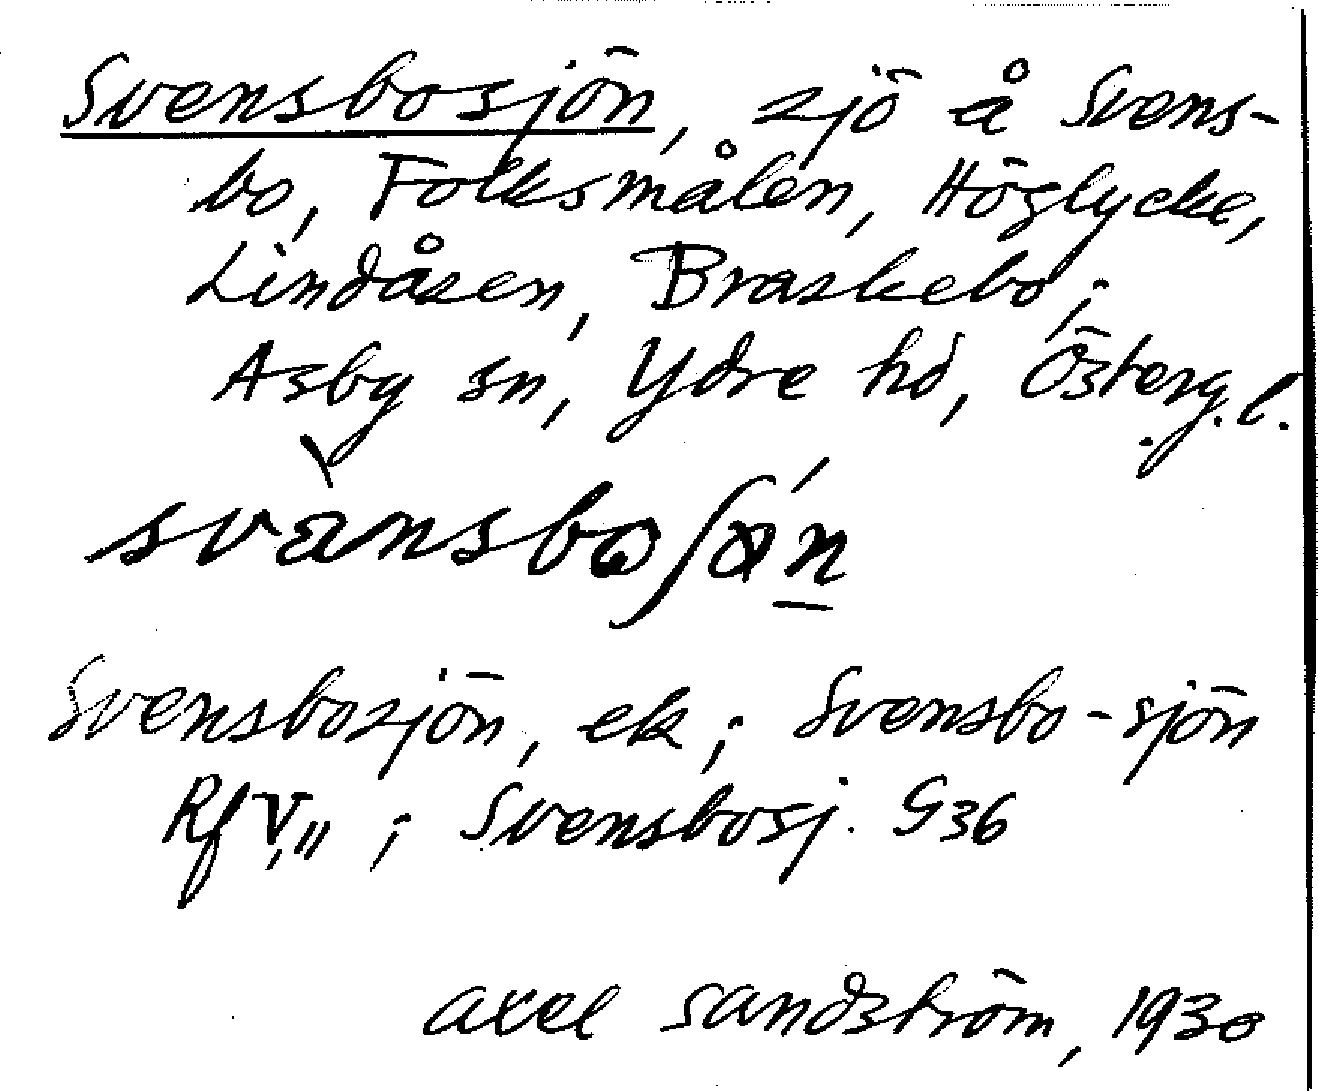 Svensbosjön, sjö å Svens-
bo, Folksmålen, Höglycke,
Lindåsen, Braskebo;
Asby sn, Ydre hd, Österg.l.
svänsboʃön
Svensbosjön, ek; Svensbo-sjön
Rf V,,, ; Svensbosj. G36
Axel Sandström, 1930